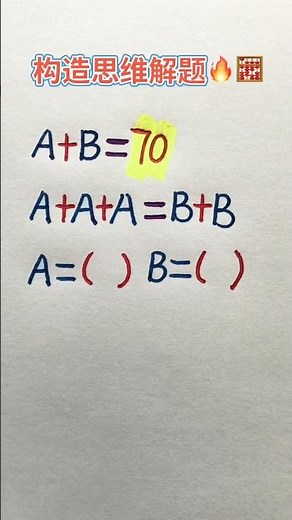 构造思维解题🔥🧮
A+B=70
A+A+A=B+B
A=( ) B=( )